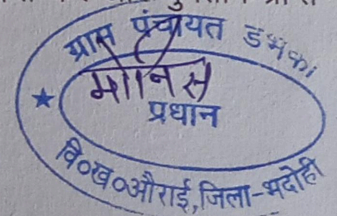 ग्राम पंचायत डभका
मोनिस
प्रधान
वि०ख०औराई,जिला-भदोही